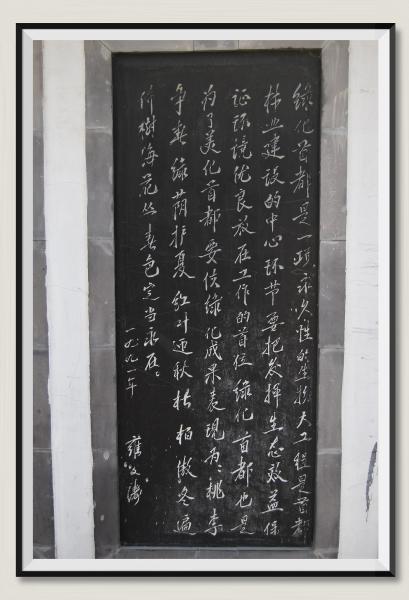 绿化首都是一项永久性的生物大工程是首都
林业建设的中心环节要把发挥生态效益保
证环境优良放在工作的首位绿化首都也是
为了美化首都要使绿化成果表现为：桃李
争春绿荫护夏红叶迎秋松柏傲冬遍
街樹海花丛春色定当永在。
一九九一年
雍文涛